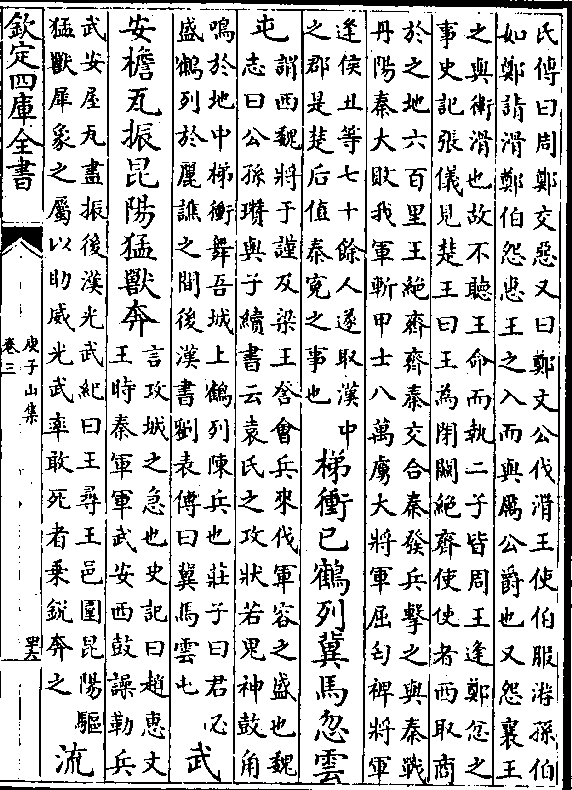 氏傳曰周鄭交惡又曰鄭文公伐滑王使伯服游孫伯
如鄭請滑鄭伯怨惠王之入而與厲公爵也又怨襄王
之與衛滑也故不聽王命而執二子皆周王逢鄭忿之
事史記張儀見楚王曰王為閉關絕齊使使者西取商
於之地六百里王絕齊齊秦交合秦發兵擊之與秦戰
丹陽秦大敗我軍斬甲士八萬虜大將軍屈匄裨將軍
逢侯丑等七十餘人遂取漢中
之郡是楚后值秦寃之事也
梯衝已鶴列冀馬忽雲
屯
謂西魏將于謹及梁王詧會兵來伐軍容之盛也魏
志曰公孫瓚與子續書云袁氏之攻狀若鬼神鼓角
鳴於地中梯衝舞吾城上鶴列陳兵也莊子曰君必
盛鶴列於麗譙之間後漢書劉表傳曰冀馬雲屯
武
安檐瓦振昆陽猛獸奔
言攻城之急也史記曰趙惠文
王時秦軍軍武安西鼓譟勒兵
武安屋瓦盡振後漢光武紀曰王尋王邑圍昆陽驅
猛獸犀象之屬以助威光武率敢死者乗銳奔之
流
欽定四庫全書
庾子山集
卷三